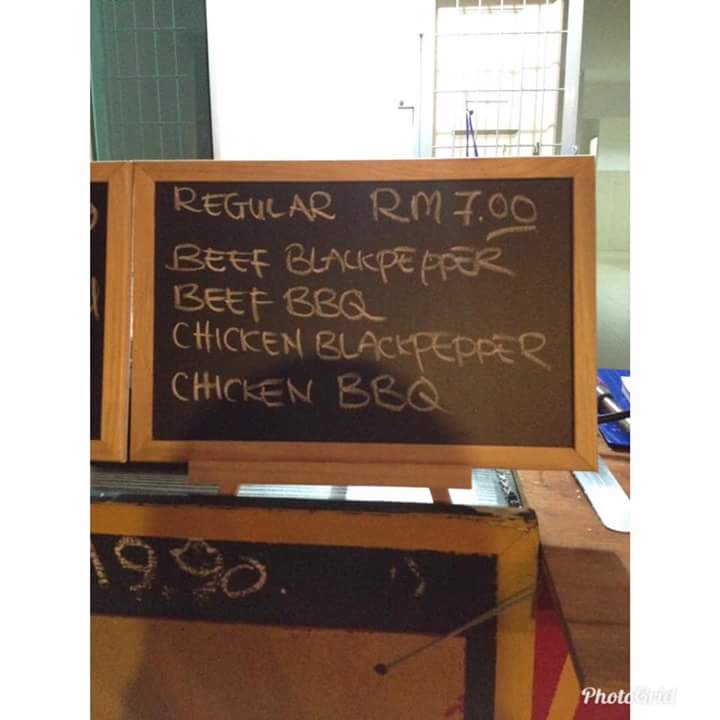 REGULAR RM 7.00
BEEF BLACKPEPPER
BEEF BBQ
CHICKEN BLACKPEPPER
CHICKEN BBQ
19.90
PhotoGrid